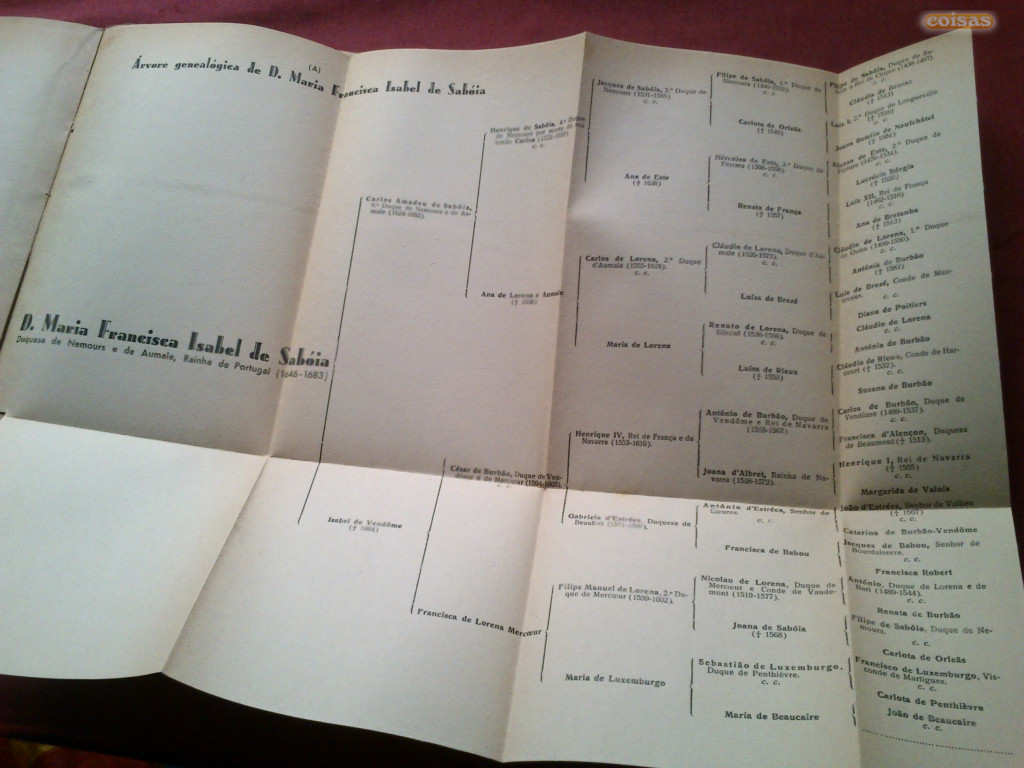 coisas
(A)
Árvore genealógica de D. Maria Francisca Isabel de Sabóia
D. Maria Francisca Isabel de Sabóia
Duquesa de Nemours e de Aumale, Rainha de Portugal (1646-1683)
Carlos Amadeu de Sabóia,
Duque de Nemours e de Au-
male (1624-1652).
Isabel de Vendôme
(† 1664)
Henrique de Sabóia, 4.º
de Nemours por morte de seu
c. c.
Ana de Lorena e Aumale
(† 1638)
César de Burbão, Duque de Ven-
dôme e de Mercœur (1594-1665).
c. c.
Francisca de Lorena Mercœur
Jacques de Sabóia, 2.º Duque de
Nemours (1531-1585).
c. c.
Ana de Este
Carlos de Lorena, 2.º Duque
d'Aumale (1555-1618).
c. c.
Maria de Lorena
Henrique IV, Rei de França e de
Navarra (1553-1610).
Gabriela d'Estrées, Duquesa de
Beaufort
Filipe Manuel de Lorena, 2.º Du-
que de Mercœur (1559-1602).
Maria de Luxemburgo
Filipe de Sabóia, 1.º Duque de
Nemours (1490-1533).
c. c.
Carlota de Orleãs
(† 1549)
Hércules de Este, 2.º Duque de
Ferrara (1508-1559).
c. c.
Renata de França
Cláudio de Lorena, Duque d'Au-
male (1526-1573).
c. c.
Luísa de Brezé
Renato de Lorena, Duque de
Elbeuf (1536-1566).
c. c.
Luísa de Rieux
António de Burbão, Duque de
Vendôme e Rei de Navarra
(1518-1562)
Joana d'Albret, Rainha de Na-
varra (1528-1572).
António d'Estrées, Senhor de
c. c.
Francisca de Babou
Nicolau de Lorena, Duque de
Mercœur e Conde de Vaude-
mont (1519-1577).
Joana de Sabóia
(† 1568)
Sebastião de Luxemburgo,
Duque de Penthièvre.
c. c.
Maria de Beaucaire
Filipe de Sabóia, Duque de Sa-
Cláudia de Brosse
(† 1513)
Luís I, 2.º Duque de Longueville
c. c.
Joana Botelin de Neufchâtel
Afonso de Este, 2.º Duque de
Ferrara (1476-1534).
c. c.
Lucrécia Bórgia
Luís XII, Rei de França
(1462-1515)
c. c.
Ana de Bretanha
(† 1513)
Cláudio de Lorena, 1.º Duque
de Guise (1496-1550).
c. c.
Antónia de Burbão
(† 1583)
Luís de Brezé, Conde de Mau-
levrier.
c. c.
Diana de Poitiers
Cláudio de Lorena
c. c.
Antónia de Burbão
Cláudio de Rieux, Conde de Har-
court († 1532).
c. c.
Susana de Burbão
Carlos de Burbão, Duque de
Vendôme (1489-1537).
c. c.
Francisca d'Alençon, Duquesa
de Beaumont († 1513).
Henrique I, Rei de Navarra
(† 1555)
c. c.
Margarida de Valois
João d'Estrées, Senhor de Valieu
(† 1567)
c. c.
Catarina de Burbão-Vendôme
Jacques de Babou, Senhor de
Bourdaisière.
c. c.
Francisca Robert
António, Duque de Lorena e de
Bari (1489-1544).
c. c.
Renata de Burbão
Filipe de Sabóia, Duque de Ne-
mours.
c. c.
Carlota de Orleãs
Francisco de Luxemburgo, Vis-
conde de Martigues.
c. c.
Carlota de Penthièvre
João de Beaucaire
c. c.